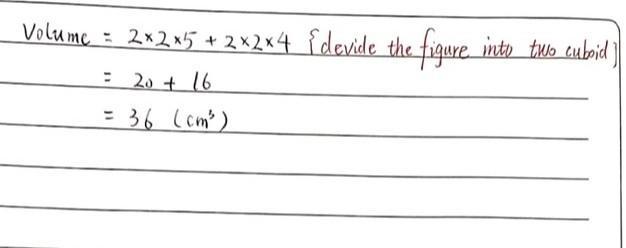 Volume = 2×2×5 + 2×2×4 {devide the figure into two cuboid}
= 20 + 16
= 36 (cm³)